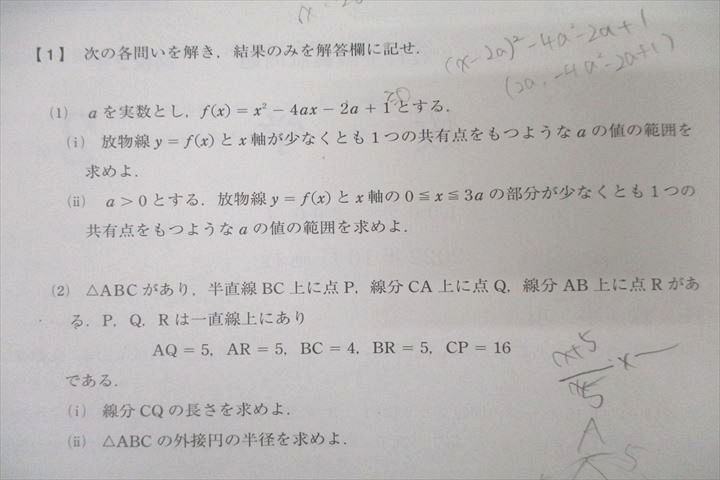 (x-2a)²-4a²-2a+1
(2a, -4a²-2a+1)
【1】 次の各問いを解き，結果のみを解答欄に記せ．
(1) aを実数とし，f(x) = x² − 4ax − 2a + 1とする．
(i) 放物線 y = f(x) と x 軸が少なくとも1つの共有点をもつような a の値の範囲を
求めよ．
(ii) a > 0 とする．放物線 y = f(x) と x 軸の 0 ≦ x ≦ 3a の部分が少なくとも1つの
共有点をもつような a の値の範囲を求めよ．
(2) △ABC があり，半直線 BC 上に点 P，線分 CA 上に点 Q，線分 AB 上に点 R があ
る．P，Q，R は一直線上にあり
AQ = 5，AR = 5，BC = 4，BR = 5，CP = 16
である．
(i) 線分 CQ の長さを求めよ．
(ii) △ABC の外接円の半径を求めよ．
A
5